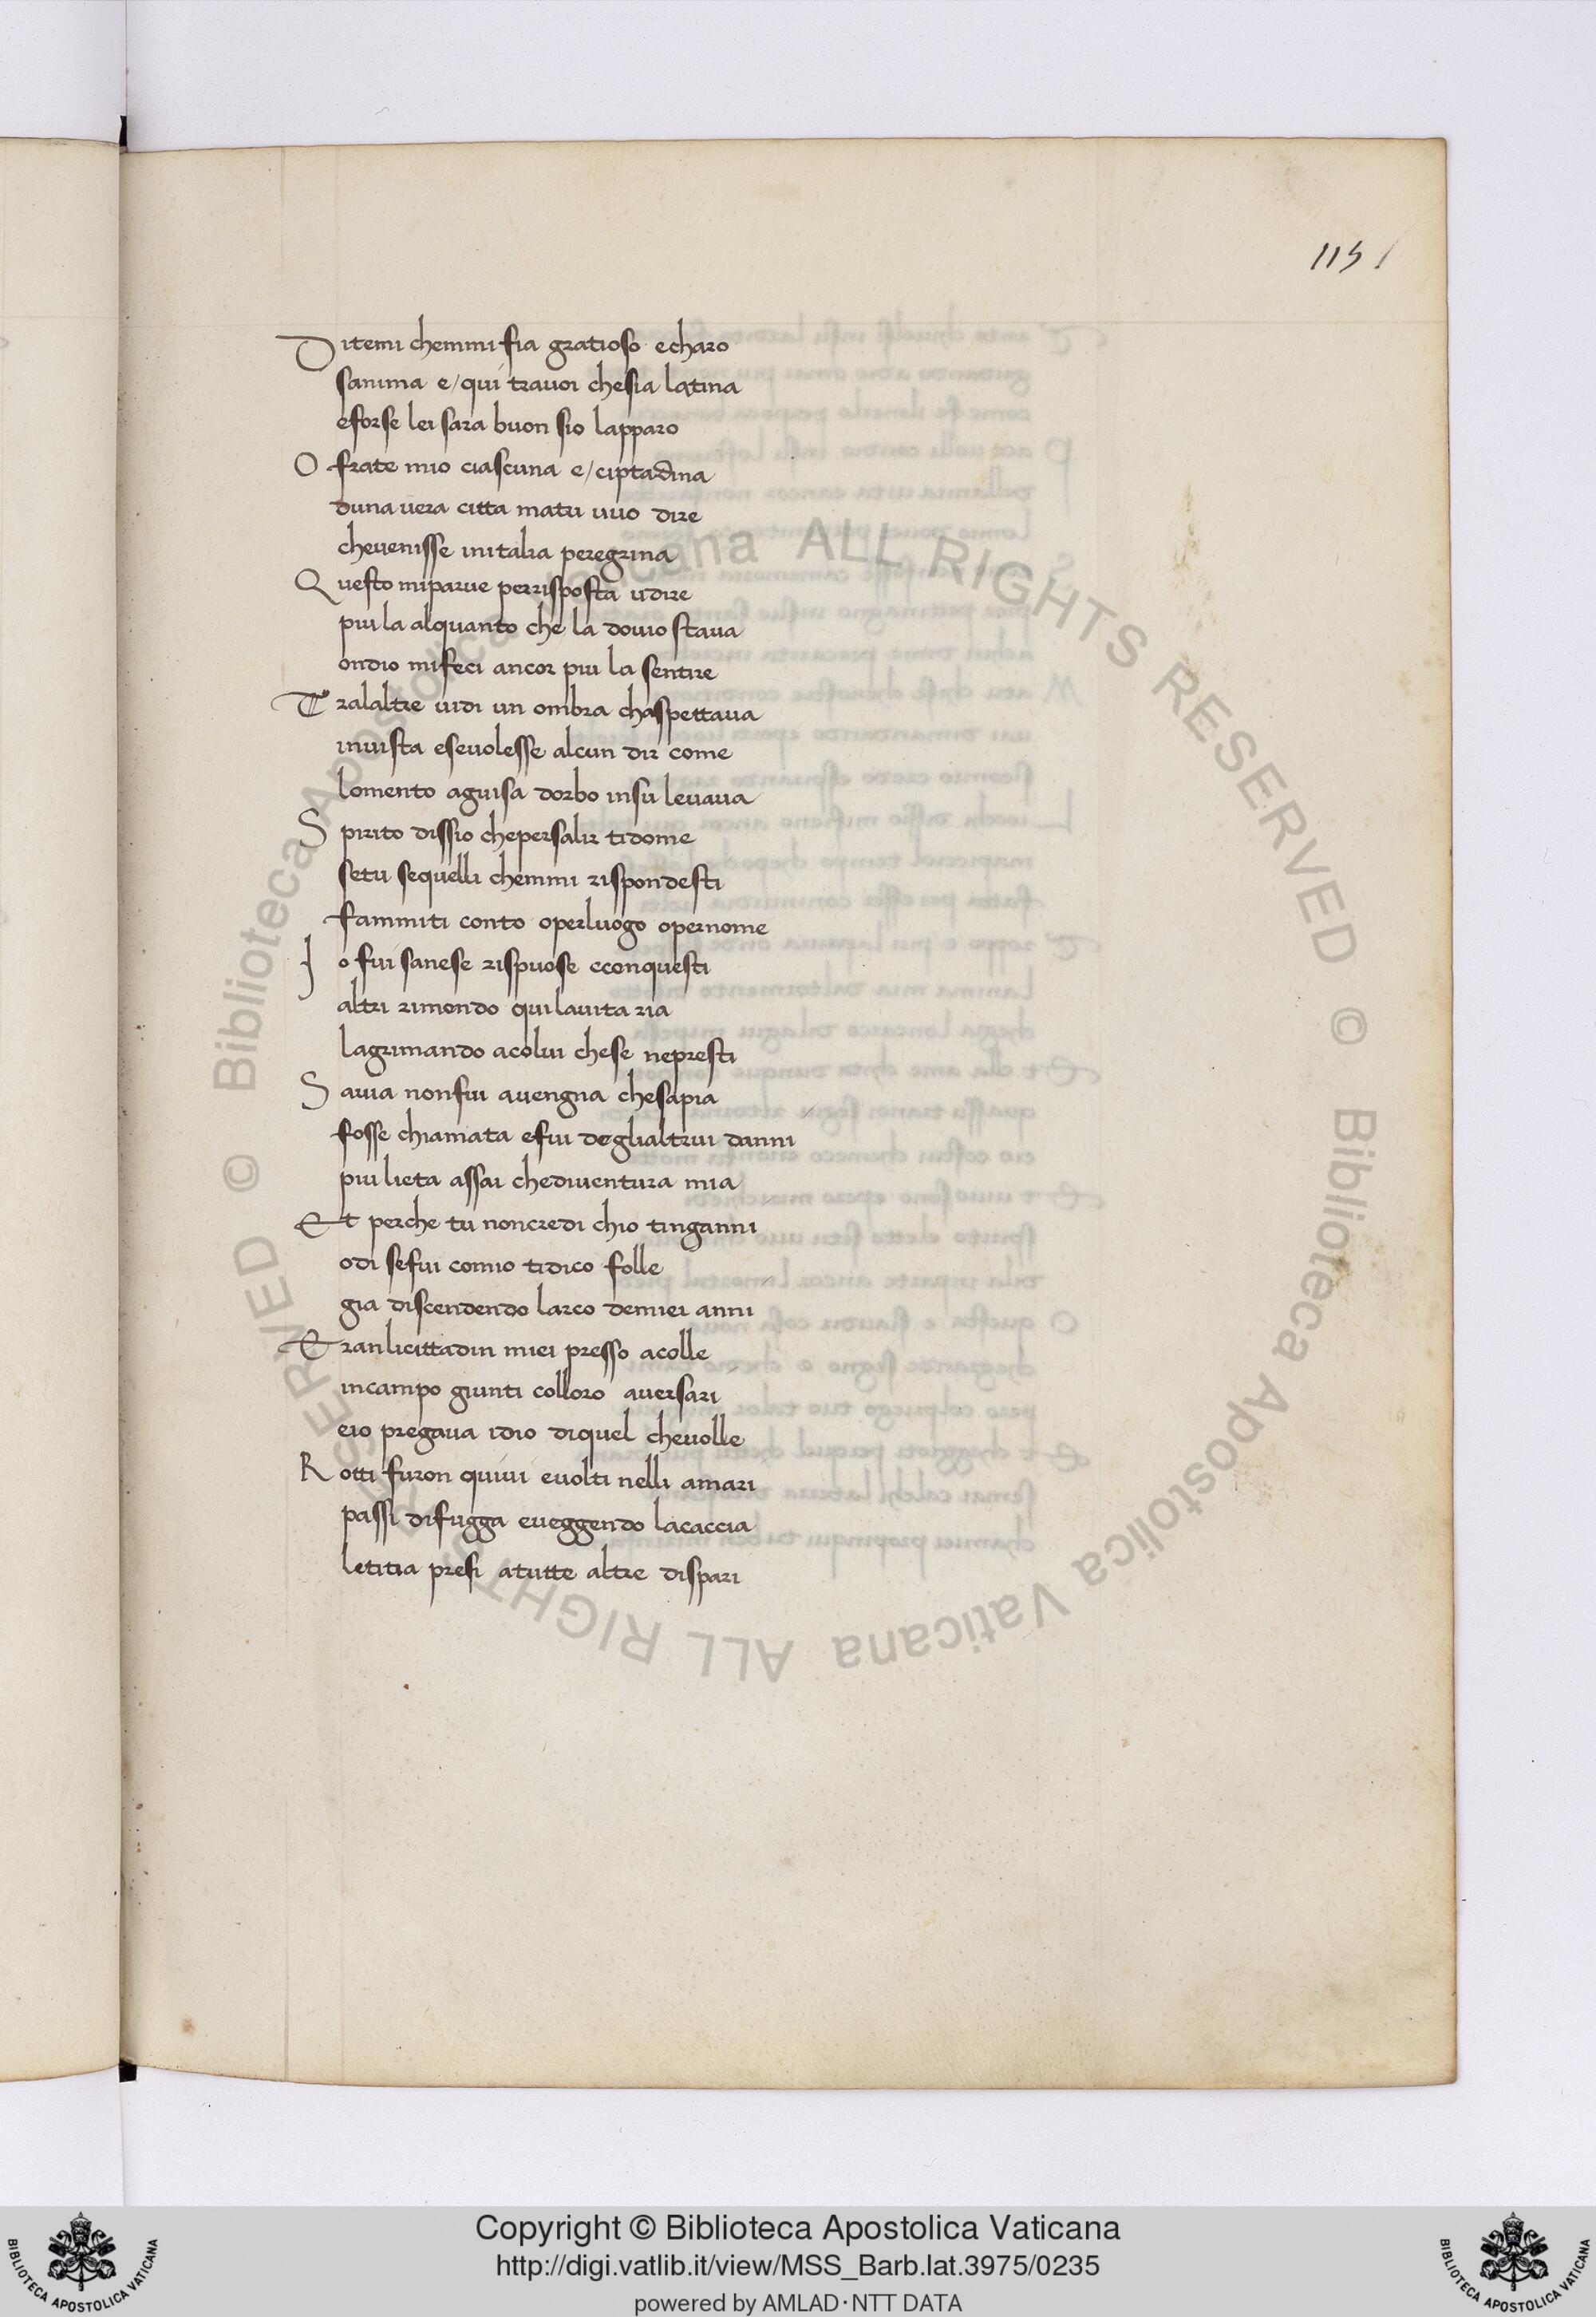 115
Ditemi chemmi fia gratioso echaro
sanima e/qui travoi chesia latina
eforse lei sara buon sio lapparo
O frate mio ciascuna e/ciptadina
duna vera citta matu vuo dire
chevenisse initalia peregrina
Questo miparve perrisposta udire
piu la alquanto che la dovio stava
ondio mifeci ancor piu la sentire
Tralaltre vidi un ombra chaspettava
invista esevolesse alcun dir come
lomento aguisa dorbo insu levava
Spirito dissio chepersalir tidome
setu sequelli chemmi rispondesti
fammiti conto operluogo opernome
Io fui sanese rispuose econquesti
altri rimondo quilavita ria
lagrimando acolui chese nepresti
Savia nonfui avengna chesapia
fosse chiamata efui deglialtrui danni
piu lieta assai chediventura mia
Et perche tu noncredi chio tinganni
odi sefui comio tidico folle
gia discendendo larco demiei anni
Eranlicittadin miei presso acolle
incampo giunti colloro aversari
eio pregava idio diquel chevolle
Rotti furon quivi evolti nelli amari
passi difugga eveggendo lacaccia
letitia presi atutte altre dispari
© Biblioteca Apostolica Vaticana ALL RIGHTS RESERVED
© Biblioteca Apostolica Vaticana ALL RIGHTS RESERVED
Copyright © Biblioteca Apostolica Vaticana
http://digi.vatlib.it/view/MSS_Barb.lat.3975/0235
powered by AMLAD·NTT DATA
BIBLIOTECA APOSTOLICA VATICANA
BIBLIOTECA APOSTOLICA VATICANA